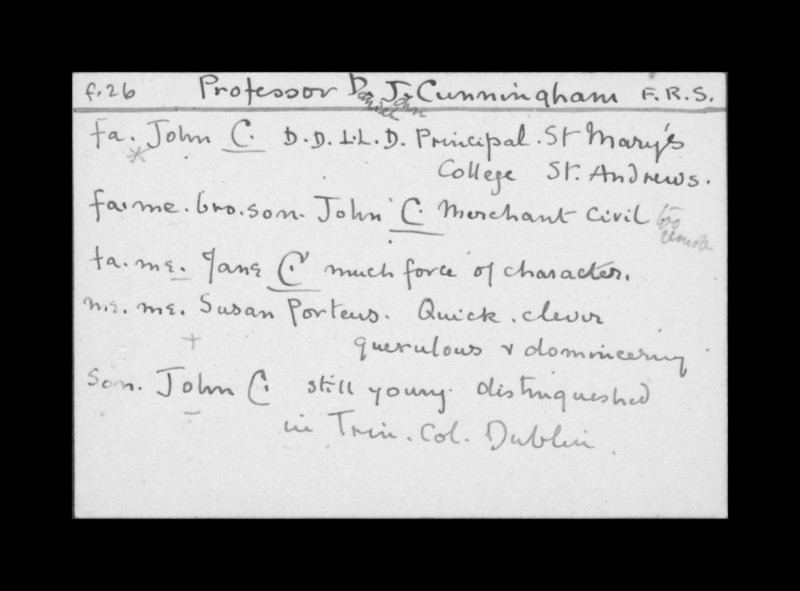 f.26 Professor D. J. Cunningham F.R.S.
Daniel John
fa. John C. D.D. L.L.D. Principal. St Mary's
College St. Andrews.
fa. me. bro. son. John C. Merchant Civil too
remote
fa. me. Jane C. much force of character.
me. me. Susan Porteus. Quick. clever
querulous & domineering
Son. John C. still young. distinguished
in Trin. Col. Dublin.